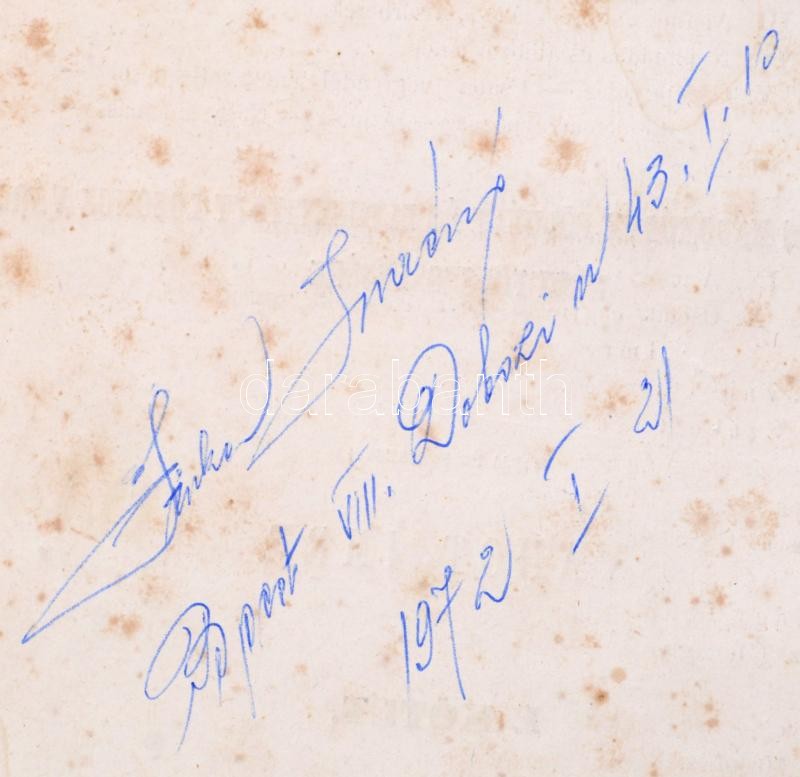 Imréné
Bpest VIII. Dobozi u 43. I. 10
1972 I 21
darabanth